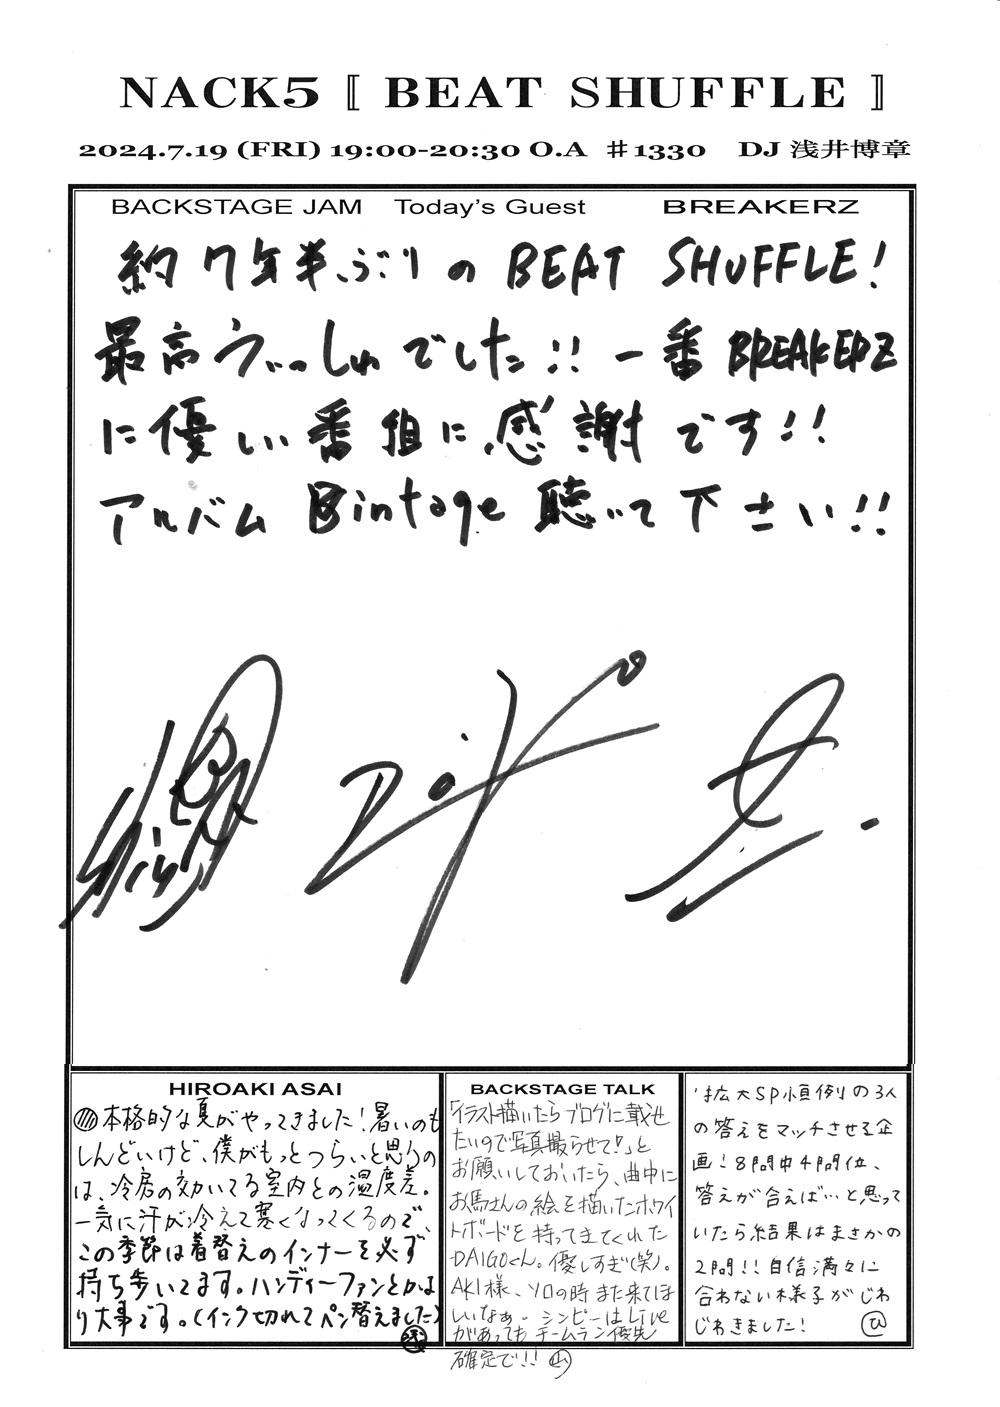 NACK5 〚 BEAT SHUFFLE 〛
2024.7.19 (FRI) 19:00-20:30 O.A ♯1330 DJ 浅井博章
BACKSTAGE JAM Today's Guest BREAKERZ
約7年半ぶりのBEAT SHUFFLE!
最高うぃっしゅでした!! 一番BREAKERZ
に優しい番組に感謝です!!
アルバム Bintage 聴いて下さい!!
HIROAKI ASAI
本格的な夏がやってきました!暑いのも
しんどいけど、僕がもっとつらいと思うの
は、冷房の効いてる室内との温度差。
一気に汗が冷えて寒くなってくるので、
この季節は着替えのインナーを必ず
持ち歩いてます。ハンディーファンとかよ
り大事です。(インク切れてペン替えました)
浅
BACKSTAGE TALK
「イラスト描いたらブログに載せ
たいので写真撮らせて!」と
お願いしておいたら、曲中に
お馬さんの絵を描いたホワイ
トボードを持ってきてくれた
DAIGOくん。優しすぎ(笑)。
AKI様、ソロの時また来てほ
しいなぁ。シンピーはLive
があってもチームラン優先
確定で!! 山
拡大SP恒例の3人
の答えをマッチさせる企
画!8問中4問位、
答えが合えば…と思って
いたら結果はまさかの
2問!!自信満々に
合わない様子がじわ
じわきました! ひ